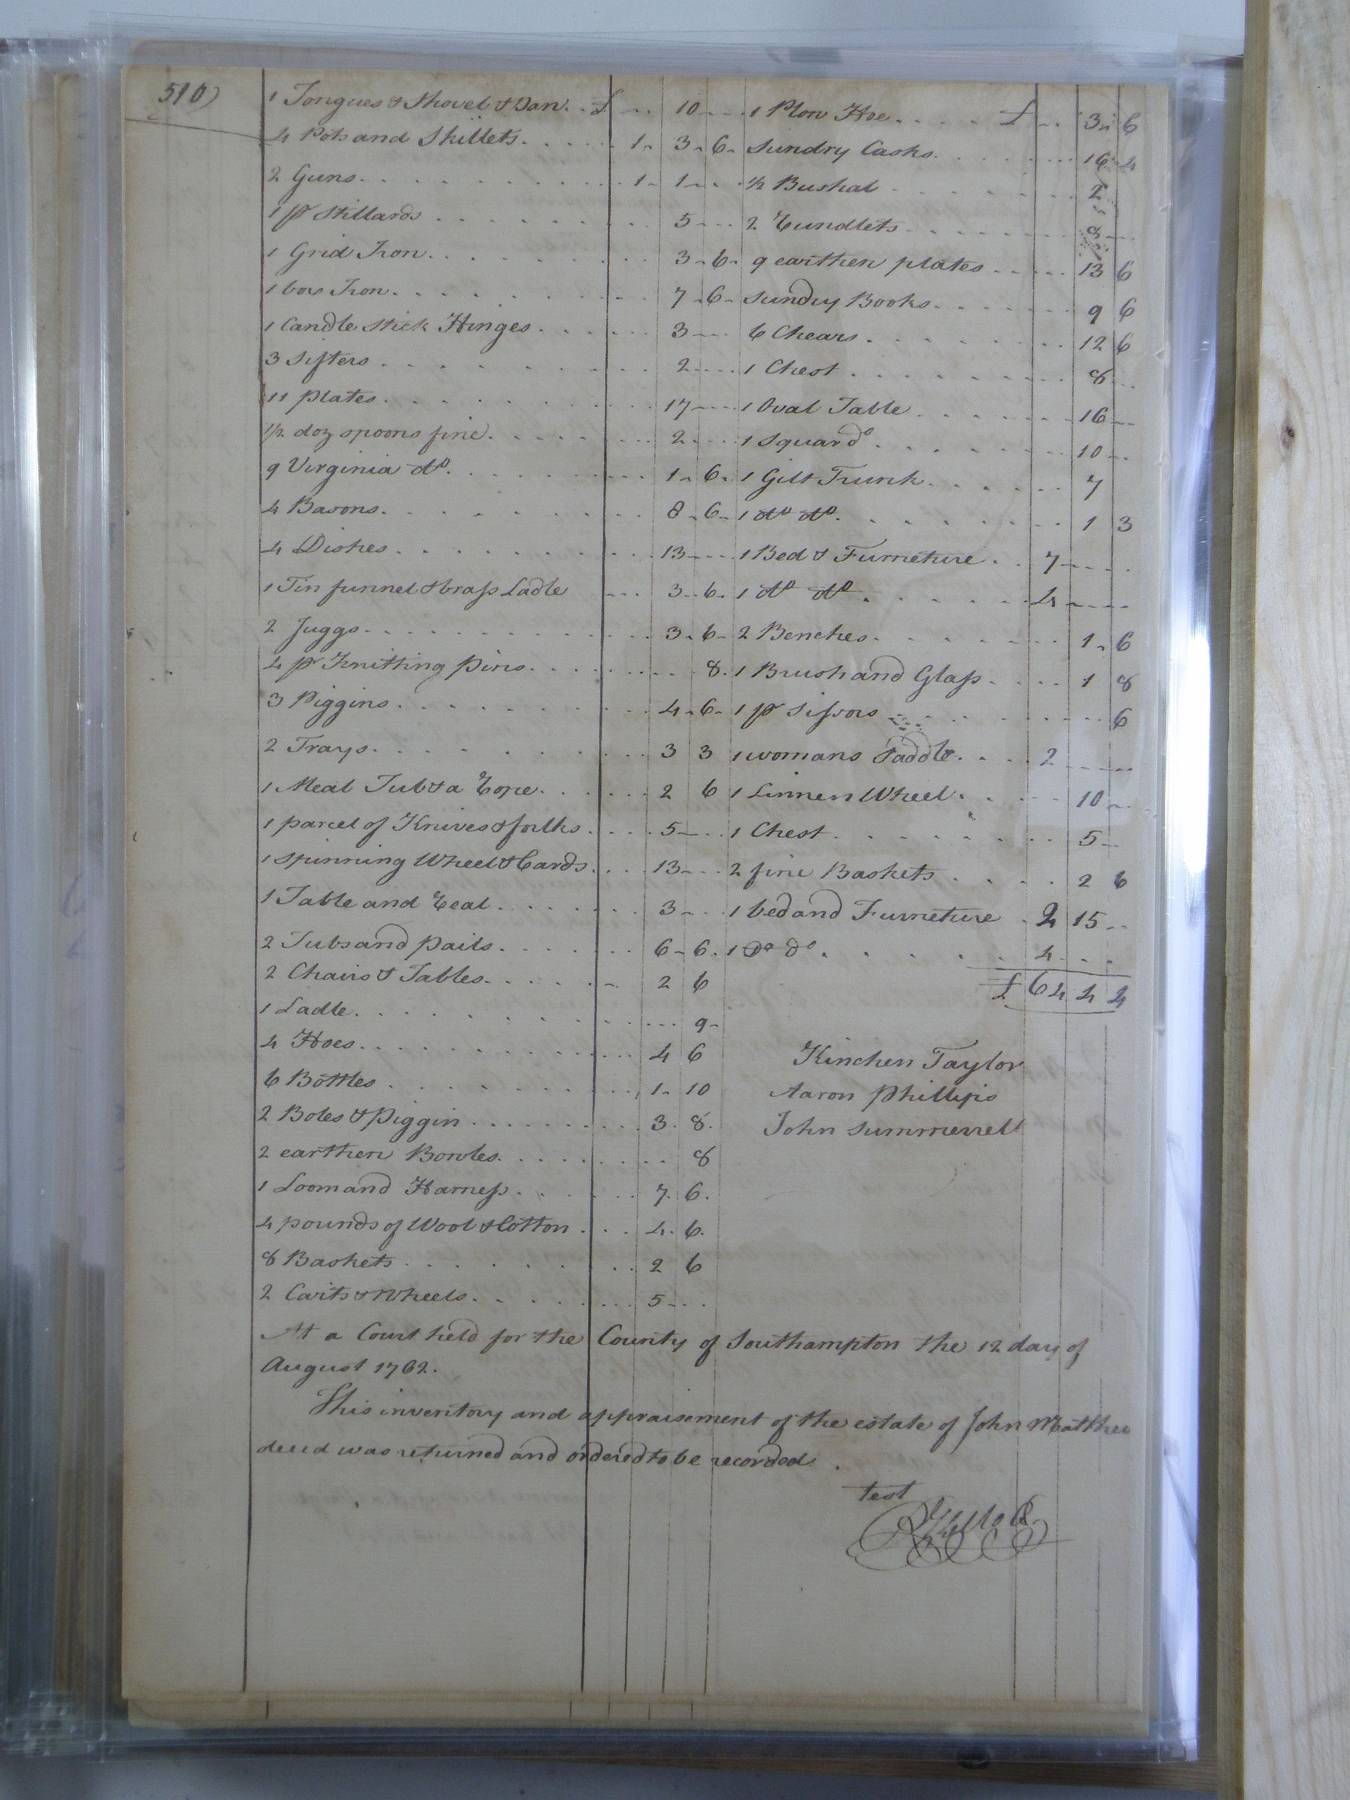 510)
1 Tongues & Shovel & Can . . £ .. 10 ...
4 Pots and Skillets . . . . . 1 .. 3 .. 6
2 Guns . . . . . 1 .. 1 ...
1 pr Stillards . . . . . 5 ...
1 Grid Iron . . . . . 3 .. 6
1 box Iron . . . . . 7 .. 6
1 Candle stick Hinges . . . . . 3 ...
3 sifters . . . . . 2 ...
11 plates . . . . . 17 ...
1/2 doz spoons fine . . . . . 2 ...
9 Virginia do . . . . . 1 .. 6
4 Basons . . . . . 8 .. 6
4 Dishes . . . . . 13 ...
1 Tin funnel & brass Ladle ... 3 .. 6
2 Juggs . . . . . 3 .. 6
4 pr Knitting pins . . . . . 8
3 Piggins . . . . . 4 .. 6
2 Trays . . . . . 3 3
1 Meal Tub & a Rope . . . . . 2 6
1 parcel of Knives & forks . . . . 5 ...
1 spinning Wheel & Cards . . . 13 ...
1 Table and Real . . . . . 3 ...
2 Tubs and pails . . . . . 6 .. 6
2 Chairs & Tables . . . . . 2 6
1 Ladle . . . . . 9
4 Hoes . . . . . 4 6
6 Bottles . . . . . 1 .. 10
2 Boles & piggin . . . . . 3 . 8
2 earthen Bowles . . . . . 8
1 Loom and Harness . . . . . 7 . 6
4 pounds of Wool & Cotton . . . 4 . 6
8 Baskets . . . . . 2 6
2 Carts & Wheels . . . . . 5 ...
1 Plow Hoe . . . . £ .. 3 .. 6
sundry Casks . . . . . 16 .. 4
1/2 Bushal . . . . . 2
2 Rundlets . . . . . 8 ...
9 earthen plates . . . . . 13 6
sundry Books . . . . . 9 6
6 Chears . . . . . 12 6
1 Chest . . . . . 8 ...
1 Oval Table . . . . . 16 ...
1 Squar do . . . . . 10 ...
1 Gilt Trunk . . . . . 7
1 do do . . . . . 1 3
1 Bed & Furneture . . 7 ....
1 do do . . . . . 4 ....
2 Benches . . . . . 1 .. 6
1 Brush and Glass . . . . 1 8
1 pr Sissors . . . . . 6
1 womans Saddle . . . . 2 ....
1 Linnen Wheel . . . . . 10 ...
1 Chest . . . . . 5 ...
2 fine Baskets . . . . . 2 6
1 bed and Furneture . 2 15 ..
1 Do do . . . . . 4 ...
£ 64 4 4
Kinchen Taylor
Aaron Phillips
John Summerrell
At a Court held for the County of Southampton the 12 day of
August 1762.
This inventory and appraisement of the estate of John Matthew
decd was returned and ordered to be recorded.
Test
R Kello Cl.